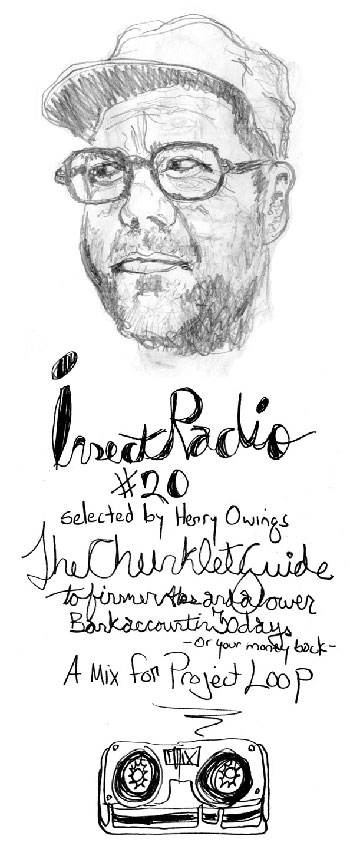 Insect Radio
#20
selected by Henry Owings
The Chunklet Guide
to firmer Abs and a lower
Bank account in 30 days
-or your money back-
A Mix for Project Loop
MIX